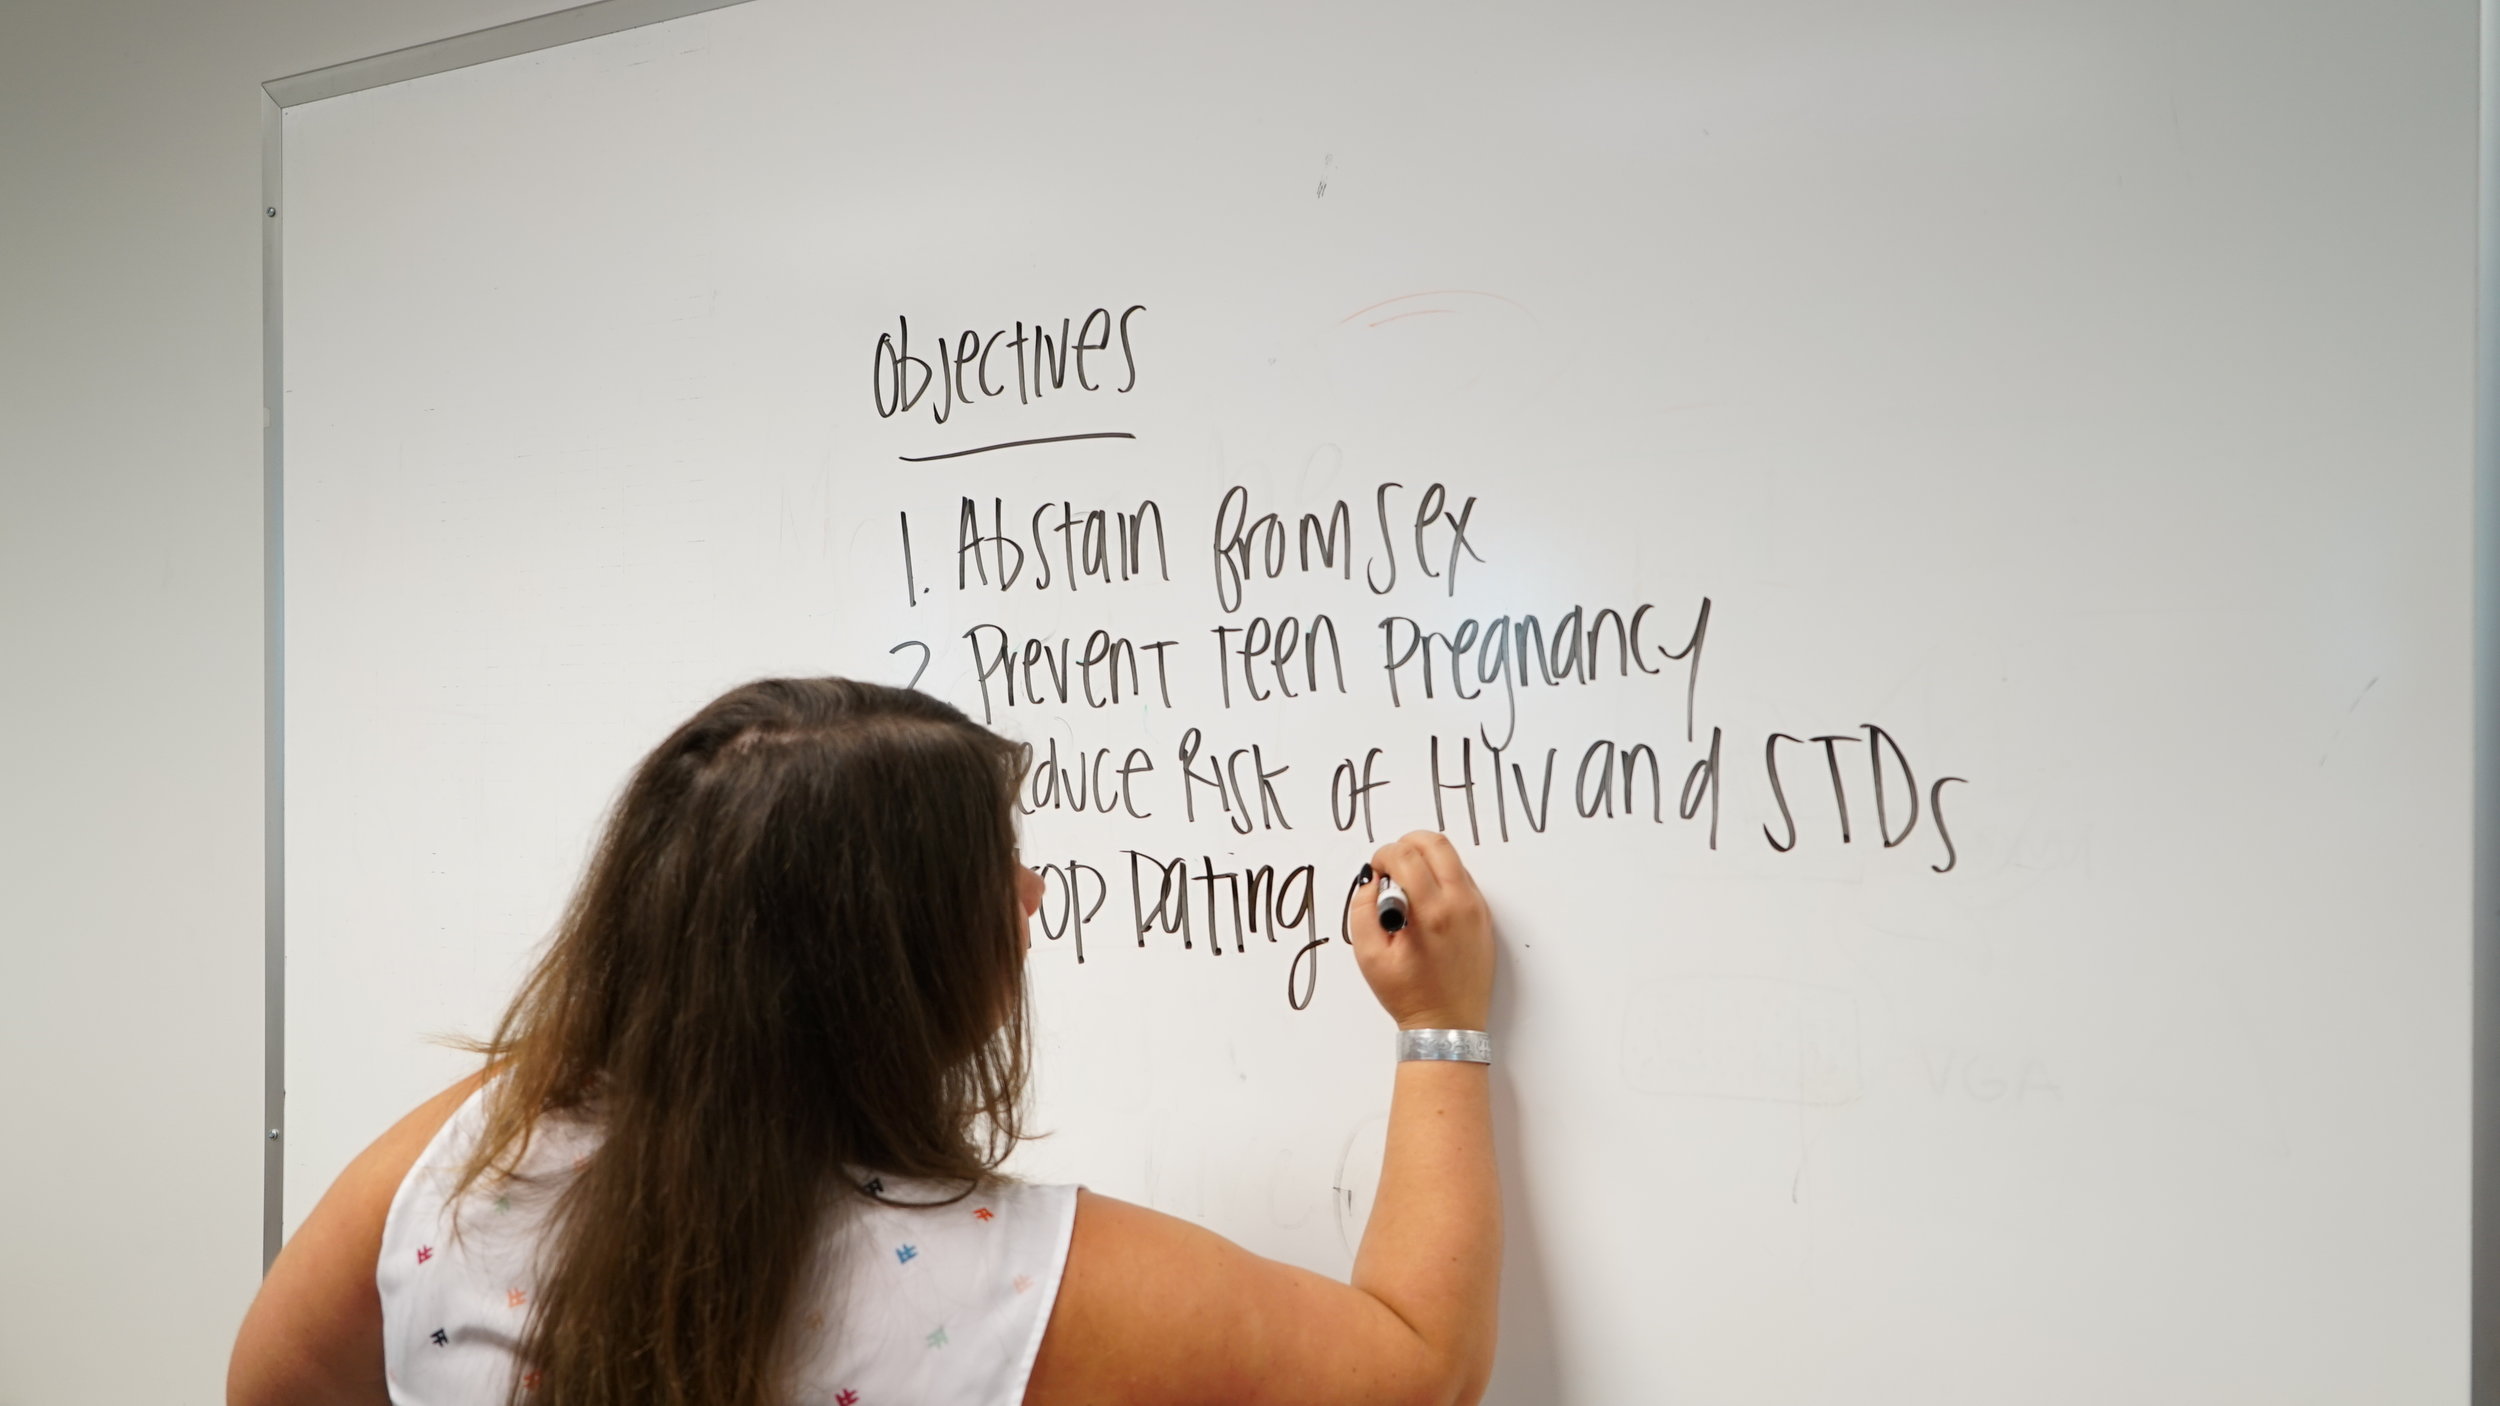 Objectives
1. Abstain from Sex
2 Prevent Teen Pregnancy
educe Risk of HIV and STDs
top Dating
VGA